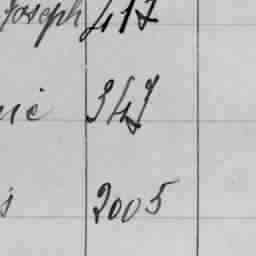 Joseph 417
347
2005